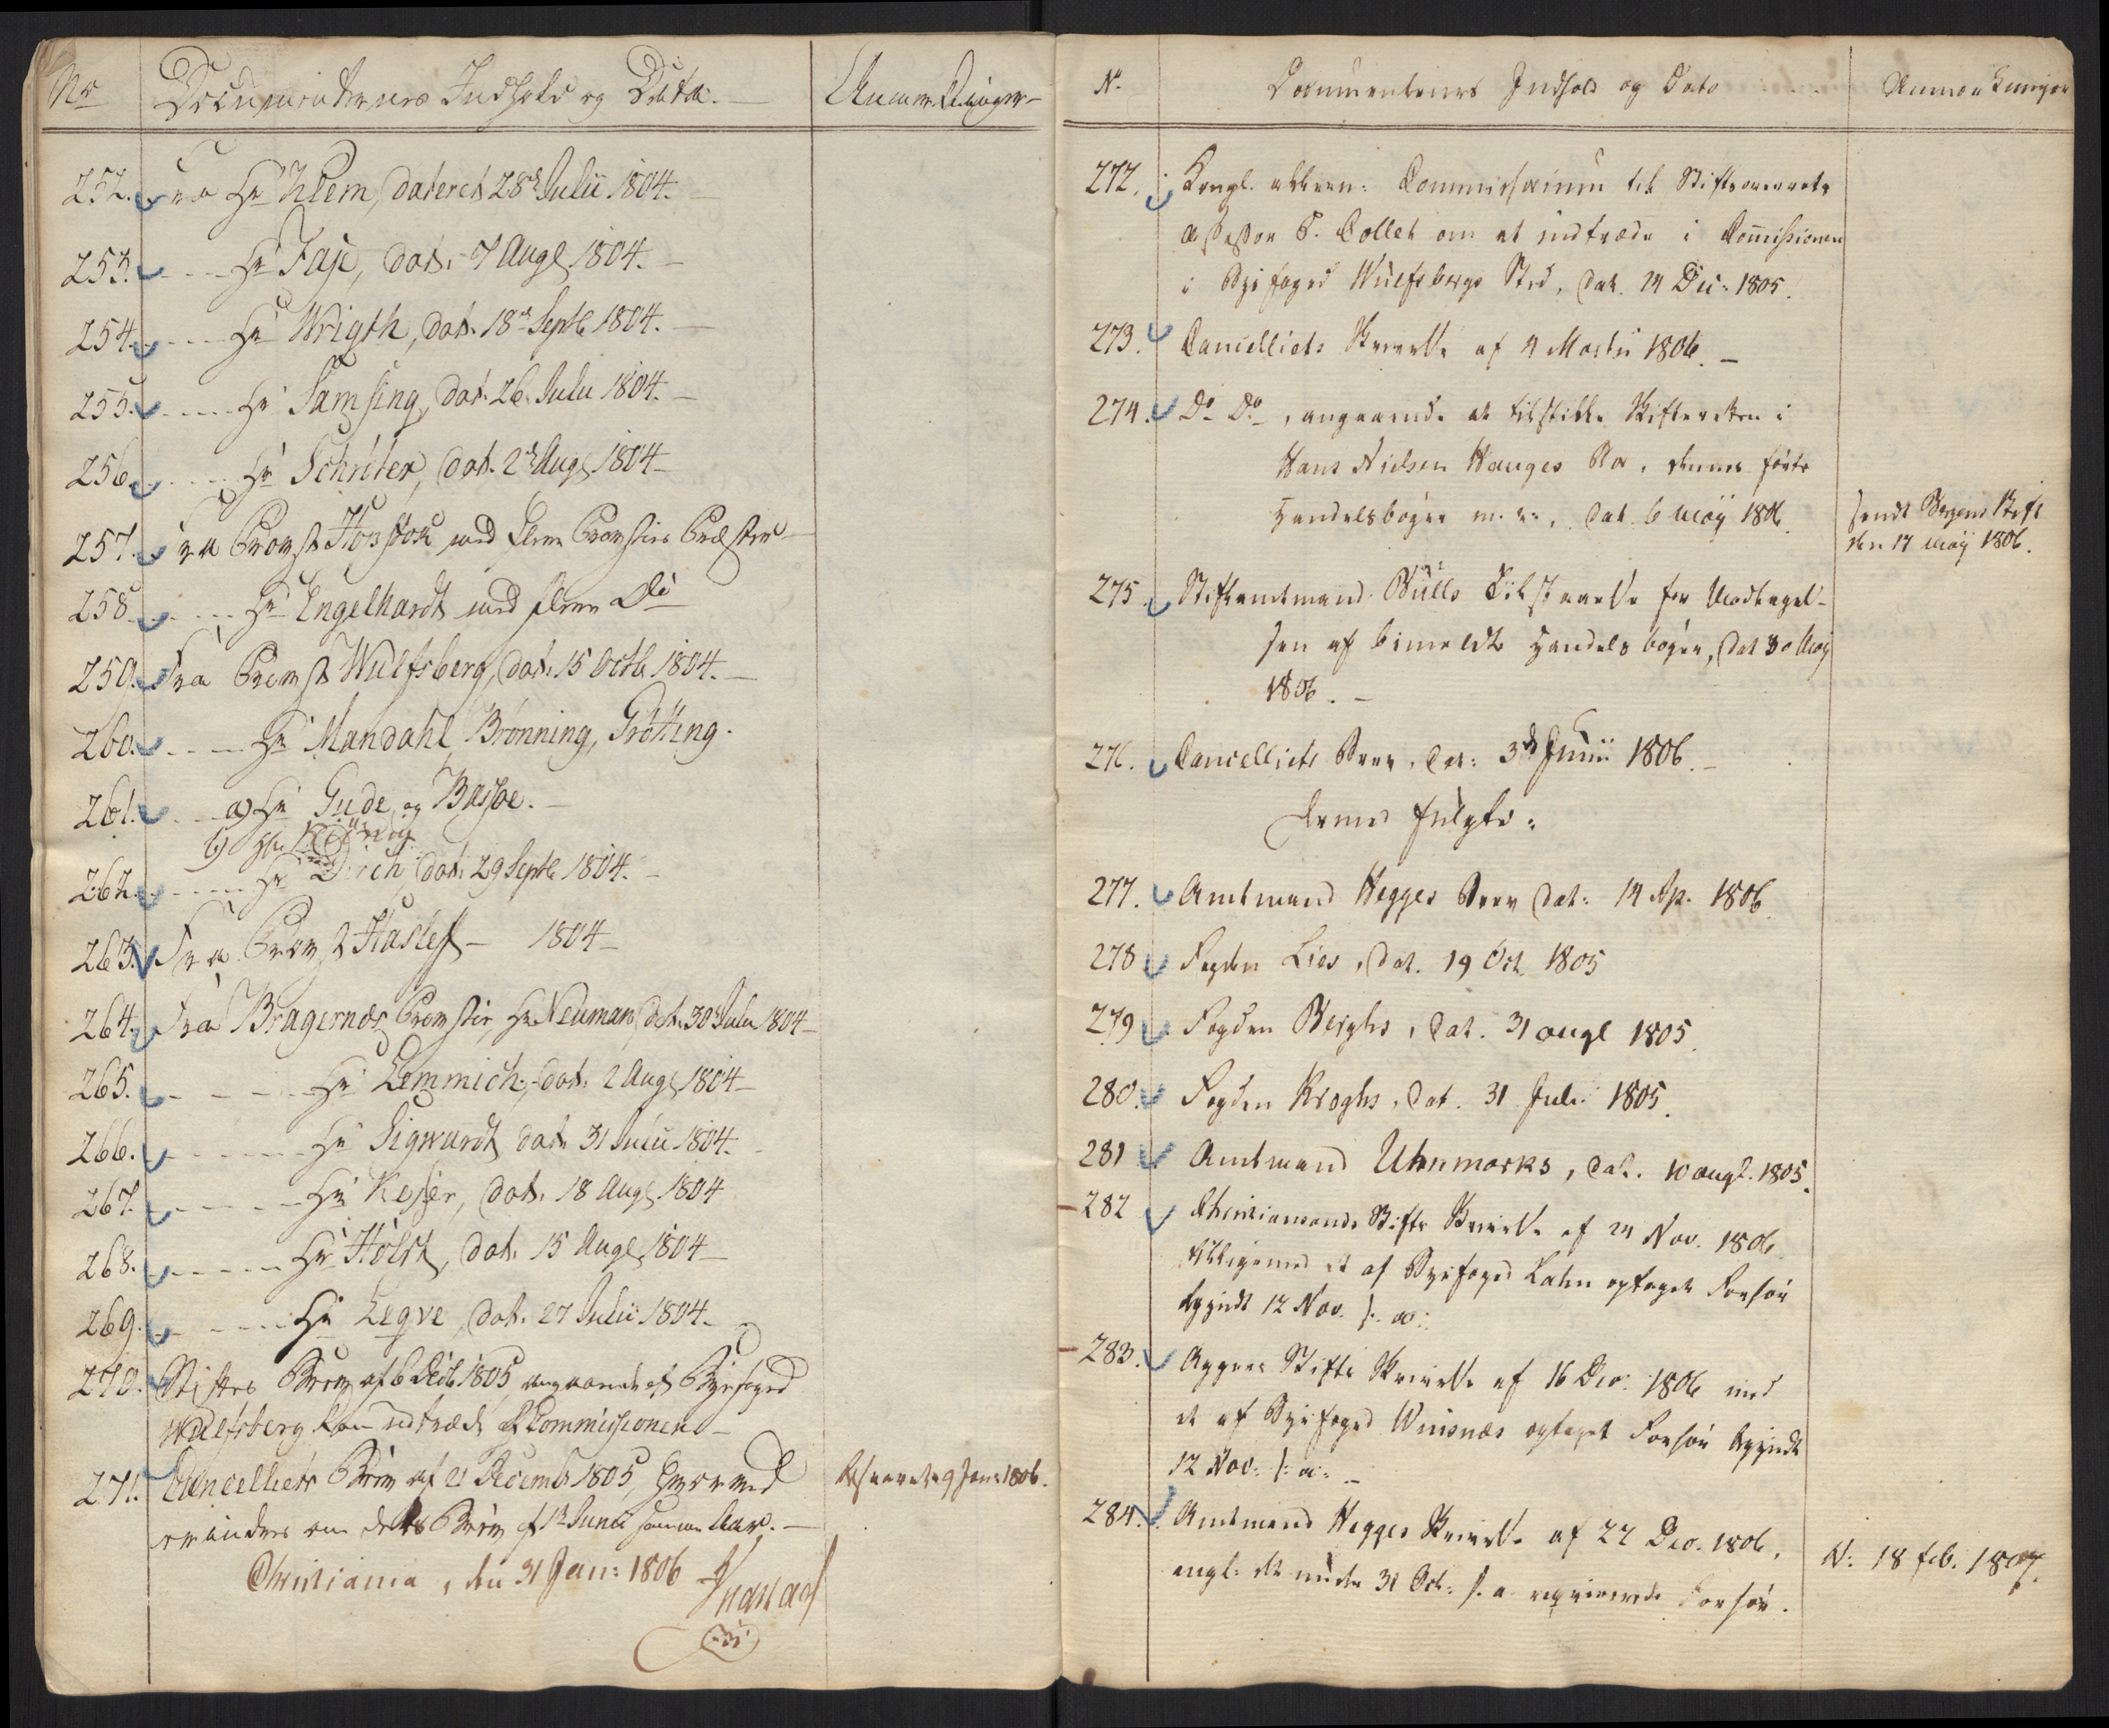 No Documenternes Indhold og Data. Anmerkninger
252. Fra Hr Klem, dateret 28de Julii 1804.
253. Hr Faje, dat. 7 Augs 1804.
254. Hr Wrigth, dat. 18de Septb 1804.
255. Hr Samsing, dat. 26. Julii 1804.
256. Hr Schrøter, dat. 2de Augs 1804
257. Fra Provst med flere Provstiets Præster
258. Hr Engelhardt med flere Do
259. Fra Provst Wulfsberg, dat. 15 Octb 1804.
260. Hr Mandahl, Brønning, Grøtting.
261. a) Hr Gude og Bassøe.
b) Hr
262. Hr Dirch, dat. 29 Septb 1804.
263. Fra Provst Haslef 1804
264. Fra Bragernæs Provstie, Hr Neuman, dat. 30te Julii 1804
265. Hr Lemmich, dat. 2 Augs 1804
266. Hr Sigwardt, dat. 31 Julii 1804.
267. Hr Keyser, dat. 18 Augs 1804
268. Hr Holst, dat. 15 Augs 1804
269. Hr Leqve, dat. 27 Julii 1804.
270. Stiftets Brev af 6 Decb 1805, angaaende at Byefoged
Wulfsberg kan udtræde af Commissionen
271. Cancelliets Brev af 21 Decemb 1805, hvorved
erindres om dets Brev af 1te Junii samme Aar.
Besvaret 9 Jan: 1806.
Christiania, den 31 Jan: 1806
Ingstad
No Documenternes Indhold og Dato Anmærkninger
272. Kongl. allern: Commissorium til Stiftsoverrets
Assessor C. Collet om at indtræde i Commissionen
i Byefoged Wulfsbergs Sted, dat. 24 Dec: 1805.
273. Cancelliets Skrivelse af 4 Martii 1806.
274. Do Do, angaaende at tilstille Skifteretten i
Hans Nielsen Hauges Bo, dennes førte
Handelsbøger m. v., dat. 6 May 1806.
sendt Bergens Stift
den 17 May 1806.
275. Stiftamtmand Bulls Tilstaaelse for Modtagel-
sen af bemeldte Handelsbøger, dat 30 May
1806.
276. Cancelliets Brev, dat: 3de Junii 1806.
hermed fulgte:
277. Amtmand Hegges Brev dat: 14 Ap. 1806.
278 Fogden Lies, dat. 19 Oct. 1805
279 Fogden Berghs, dat. 31 augt 1805.
280. Fogden Kroghs, dat. 31 Juli 1805.
281 Amtmand Uhnmarks, dat. 10 augt. 1805.
282 Christiansands Stifts Skrivelse af 24 Nov. 1806.
tilligemed et af Byefoged Lahn optaget Forhør
begyndt 12 Nov. s: a:
283. Aggers Stifts Skrivelse af 16 Dec. 1806 med
et af Byefoged Wiisnæs optaget Forhør begyndt
12 Nov: s: a:
284. Amtmand Hegges Skrivelse af 22 Dec. 1806,
angl: det under 31 Oct: s. a. reqvirerede Forhør.
N: 18 feb. 1807.